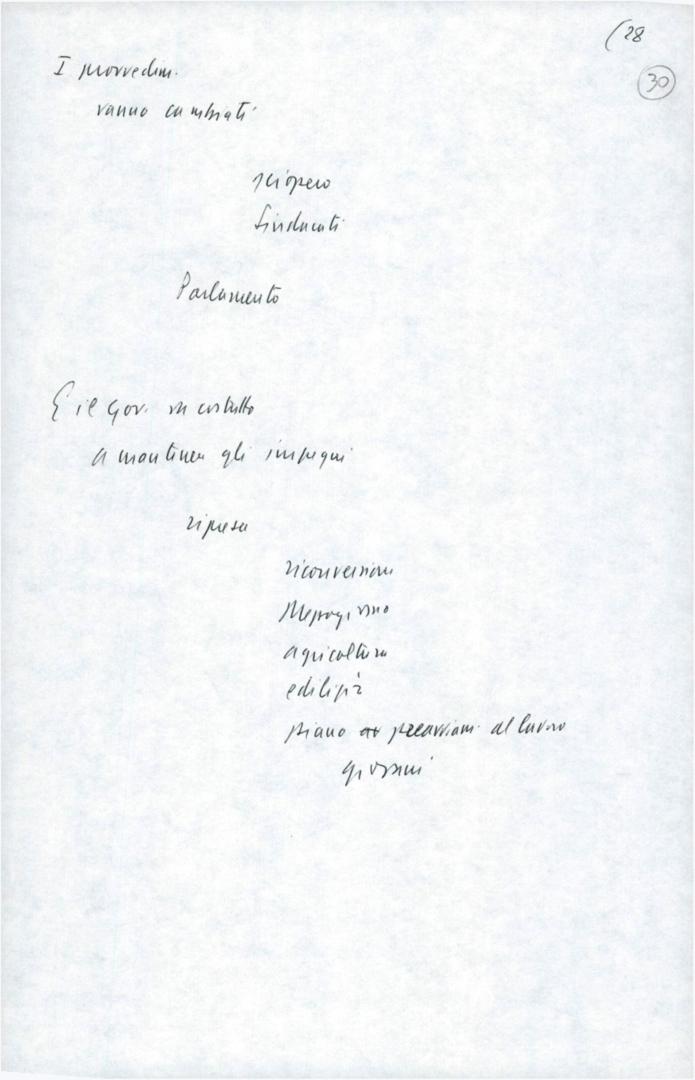 (28
30
I provvedim.
vanno cambiati
sciopero
Sindacati
Parlamento
E il Gov. va costretto
a mantener gli impegni
ripresa
riconversione
Mezzogiorno
agricoltura
edilizia
piano al lavoro
giovani